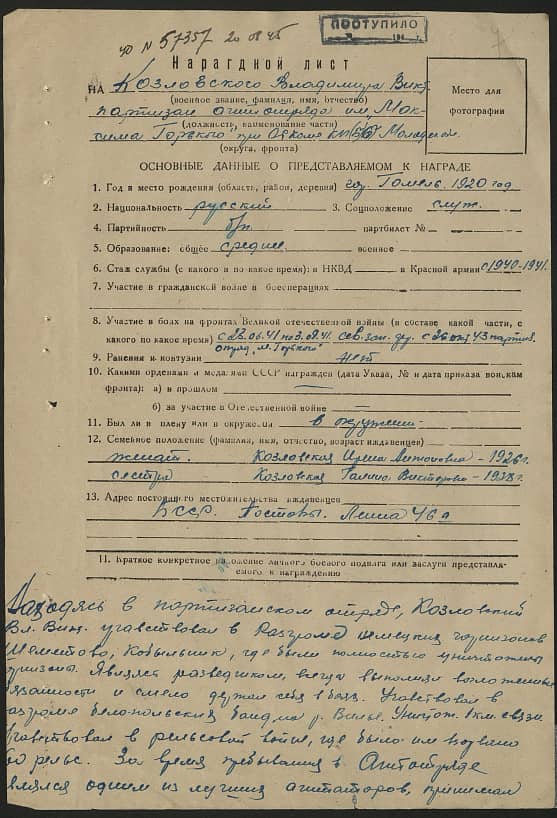 ПОСТУПИЛО
N 57357 20 08 45
Нарагдной лист
НА Козловского Владимира Викт.
(военное звание, фамилия, имя, отчество)
партизан агитотряда им. Мак-
(должность, наименование части)
сима Горького при Обкоме КП(б)Б Молодечн.
(округа, фронта)
Место для
фотографии
ОСНОВНЫЕ ДАННЫЕ О ПРЕДСТАВЛЯЕМОМ К НАГРАДЕ
1. Год и место рождения (область, район, деревня) гор. Гомель. 1920 год
2. Национальность русский 3. Соцположение служ.
4. Партийность б/п. партбилет № —
5. Образование: общее среднее. военное —
6. Стаж службы (с какого и по какое время): в НКВД — в Красной армии с 1940-1941.
7. Участие в гражданской войне и боеоперациях —
8. Участие в боях на фронтах Великой отечественной войны (в составе какой части, с
какого по какое время) с 23.06.41 по 3.9.41. сев. зап. с 26 43 партиз.
отряд „М. Горького"
9. Ранения и контузии нет
10. Какими орденами и медалями СССР награжден (дата Указа, № и дата приказа войскам
фронта): а) в прошлом —
б) за участие в Отечественной войне —
11. Был ли в плену или в окружении в окружении.
12. Семейное положение (фамилия, имя, отчество, возраст иждивенцев)
женат. Козловская Ирина Антоновна - 1926 г.
сестра Козловская Галина Викторовна - 1938 г.
13. Адрес постоянного местожительства иждивенцев
БССР. Поставы. Ленина 46а
11. Краткое конкретное изложение личного боевого подвига или заслуги представля-
емого к награждению
Находясь в партизанском отряде, Козловский
Вл. Викт. участвовал в разгроме немецких гарнизонов
Шеметово, Кобыльник, где были полностью уничтожены
гарнизоны. Являясь разведчиком, всегда выполнял возложенные
обязанности и смело держал себя в боях. Участвовал в
разгроме белопольских банд на р. Вилье. Уничтож. 1 км. связи.
Участвовал в рельсовой войне, где было им взорвано
рельс. За время пребывания в Агитотряде
являлся одним из лучших агитаторов, принимал